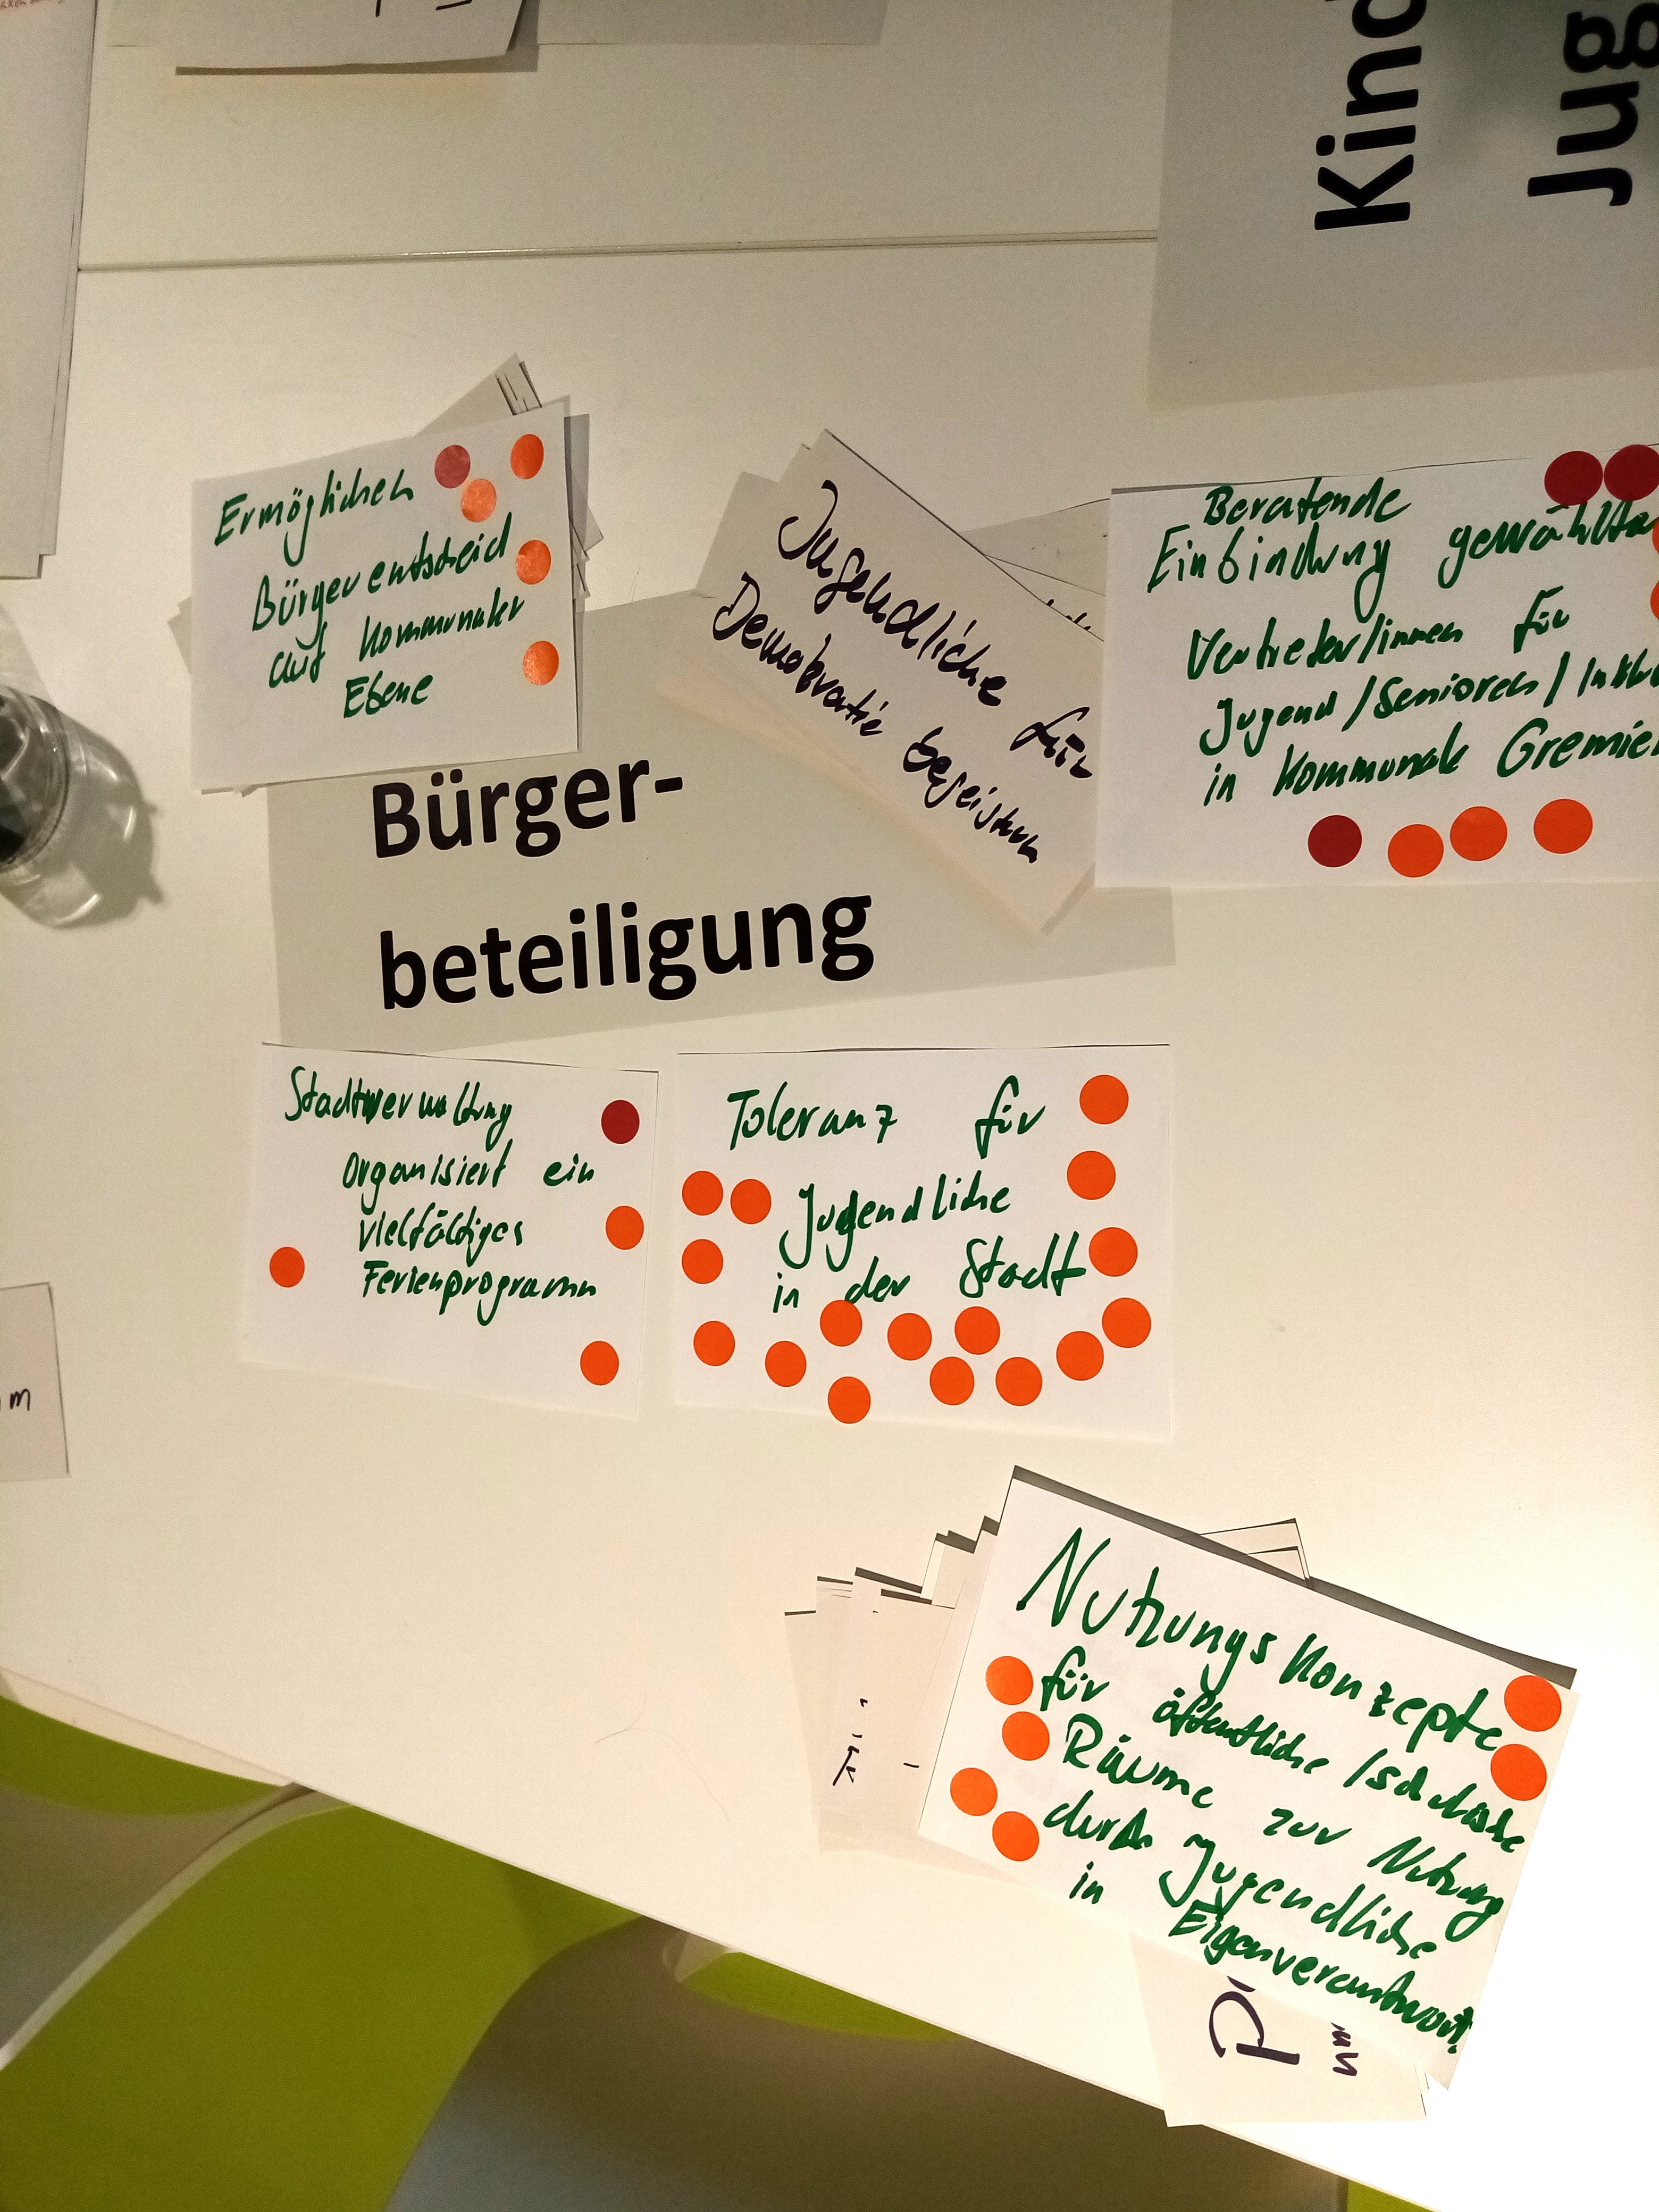 Kind
Jug
Ermöglichen
Bürgerentscheid
auf kommunaler
Ebene
Jugendliche für
Demokratie begeistern
Beratende
Einbindung gewählter
Vertreter/innen für
Jugend / Senioren / Inklu
in kommunale Gremie
Bürger-
beteiligung
Stadtverwaltung
organisiert ein
vielfältiges
Ferienprogramm
Toleranz für
Jugendliche
in der Stadt
m
Nutzungskonzepte
für öffentliche / schulische
Räume zur Nutzung
durch Jugendliche
in Eigenverantwort.